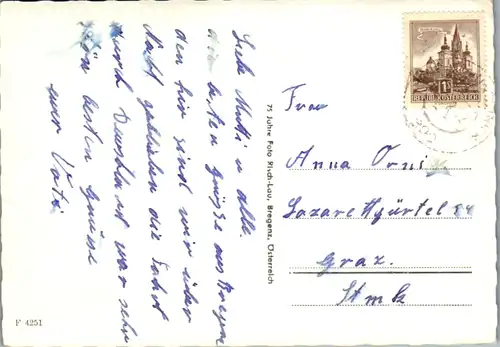 Liebe Mutti u alle.
die besten Grüße aus Bregenz
den hier sind wir über
Nacht geblieben die Fahrt
durch Deuschland war sehr
schön besten Grüsse
euer Vati
75 Jahre Foto Risch-Lau, Bregenz, Österreich
F 4251
REPUBLIK ÖSTERREICH
Frau
Anna
Lazarettgürtel
Graz.
Stmk